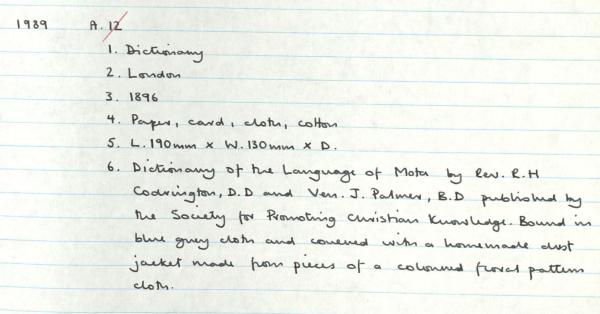 1989 A. 12
1. Dictionary
2. London
3. 1896
4. Paper, card, cloth, cotton
5. L. 190mm x W. 130mm x D.
6. Dictionary of the Language of Mota by Rev. R.H
Codrington, D.D and Ven. J. Palmer, B.D published by
the Society for Promoting Christian Knowledge. Bound in
blue grey cloth and covered with a homemade dust
jacket made from pieces of a coloured floral pattern
cloth.